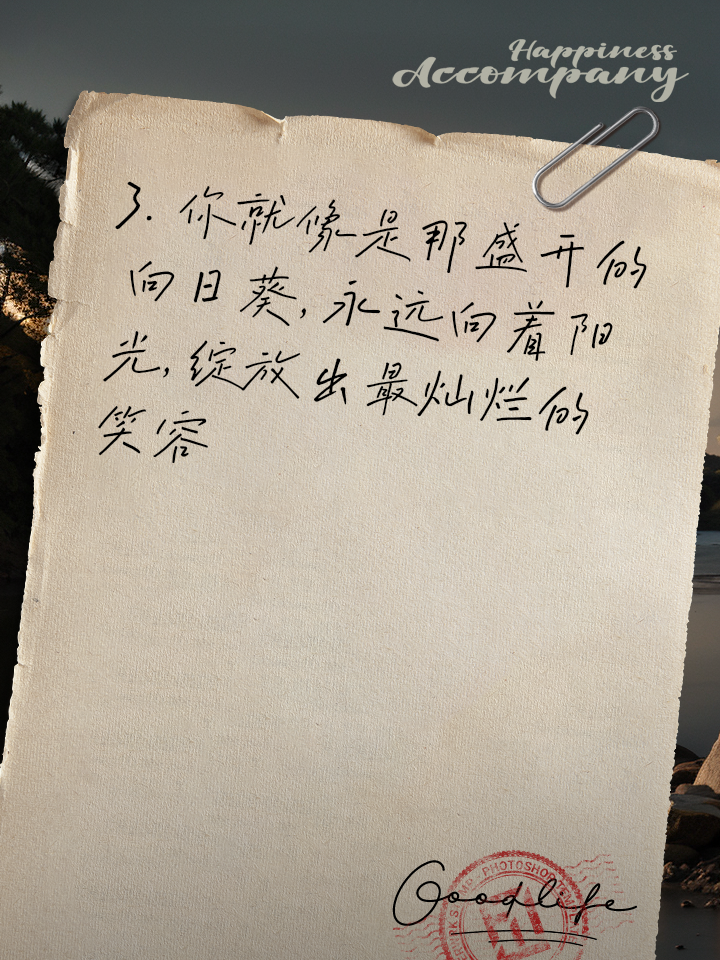 Happiness
Accompany
3. 你就像是那盛开的
向日葵,永远向着阳
光,绽放出最灿烂的
笑容
Goodlife